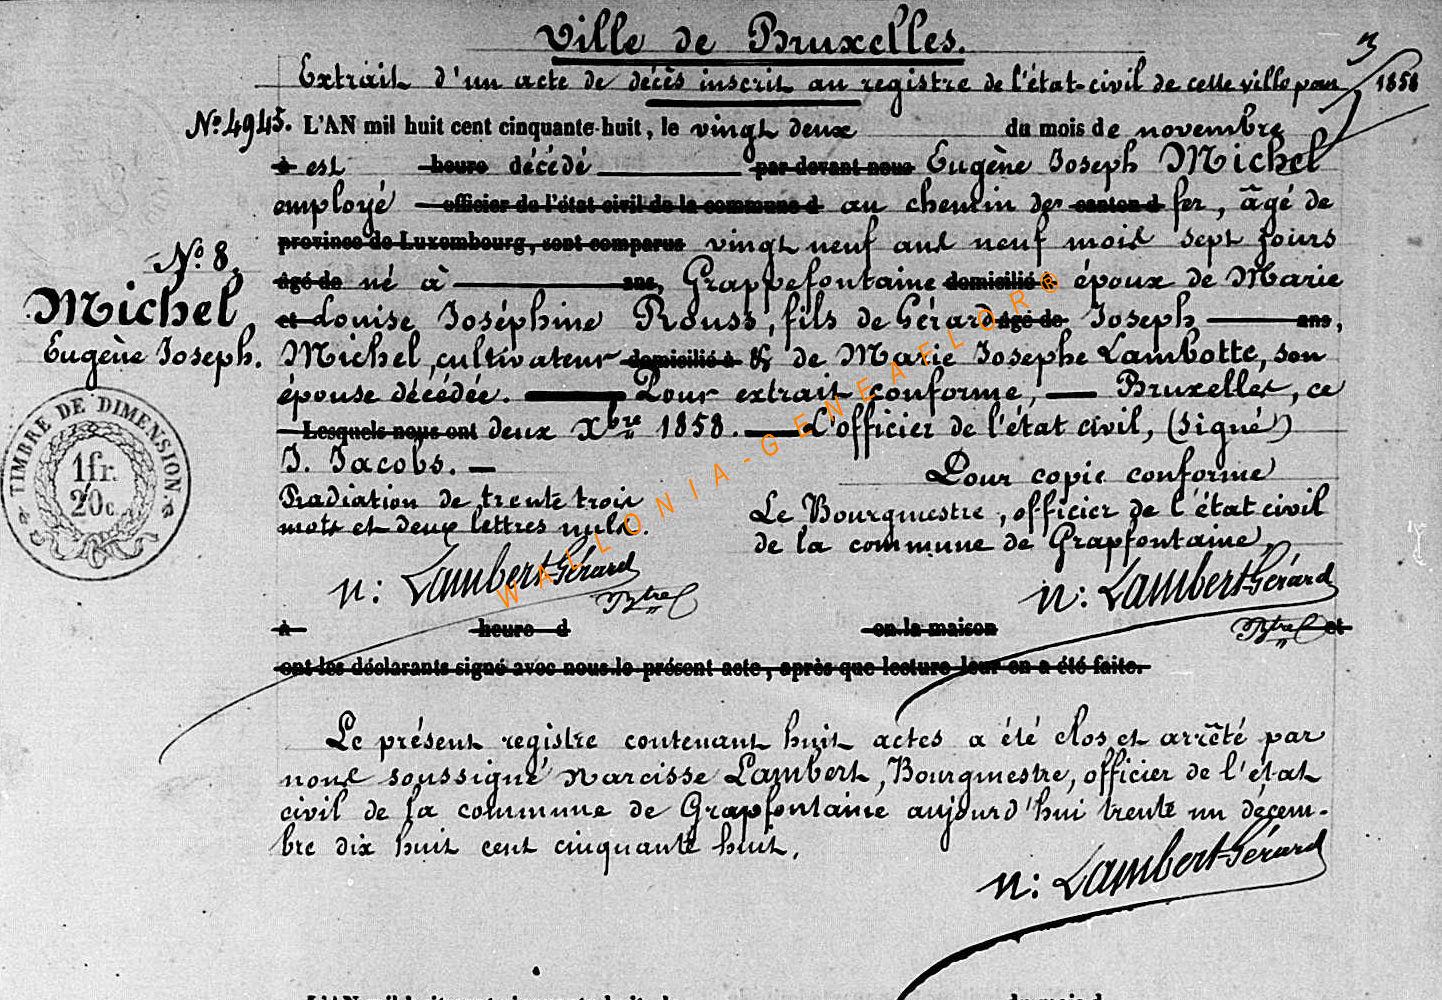 Ville de Bruxelles.
3
Extrait d'un acte de décès inscrit au registre de l'état-civil de cette ville pour 1858
No. 4945. L'AN mil huit cent cinquante-huit, le vingt deux du mois de novembre
à est heure décédé par devant nous Eugène Joseph Michel
employé officier de l'état civil de la commune d au chemin de canton d fer, âgé de
province de Luxembourg, sont comparus vingt neuf ans neuf mois sept jours
âgé de né à ans, Grappefontaine domicilié à époux de Marie
et Louise Joséphine Rouss, fils de Gérard âgé de Joseph ans,
Michel, cultivateur domicilié à & de Marie Josephe Lambotte, son
épouse décédée. Pour extrait conforme, Bruxelles, ce
Lesquels nous ont deux Xbre 1858. L'officier de l'état civil, (signé)
J. Jacobs.
No. 8.
Michel
Eugène Joseph.
TIMBRE DE DIMENSION.
1fr.
20c
Radiation de trente trois
mots et deux lettres nuls.
N: Lambert-Gérard
Pour copie conforme
Le Bourgmestre, officier de l'état civil
de la commune de Grapfontaine,
N: Lambert-Gérard
à heure d en la maison et
ont les déclarants signé avec nous le présent acte, après que lecture leur en a été faite.
Le présent registre contenant huit actes a été clos et arrêté par
nous soussigné Narcisse Lambert, Bourgmestre, officier de l'état
civil de la commune de Grapfontaine aujourd'hui trente un décem-
bre dix huit cent cinquante huit.
N: Lambert-Gérard
WALLONIA-GENEAFLOR®